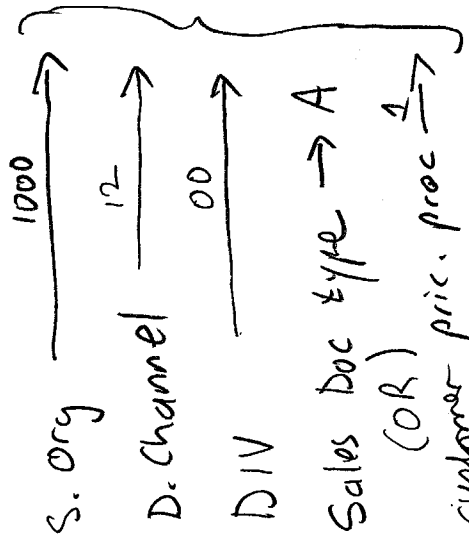 S. org 1000 →
D. channel 12 →
DIV 00 →
Sales Doc type → A
(OR)
customer pric. proc 1 →